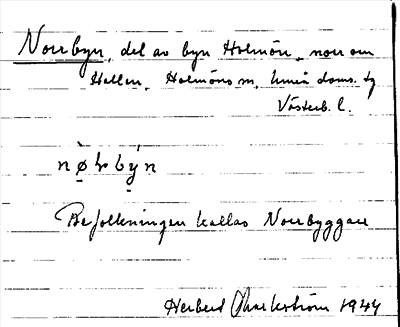 Norrbyn, del av byn Holmön, norr om
Hallen, Holmöns sn, Umeå doms. tg
Västerb. l.
Befolkningen kallas Norrbyggare
Herbert 1944